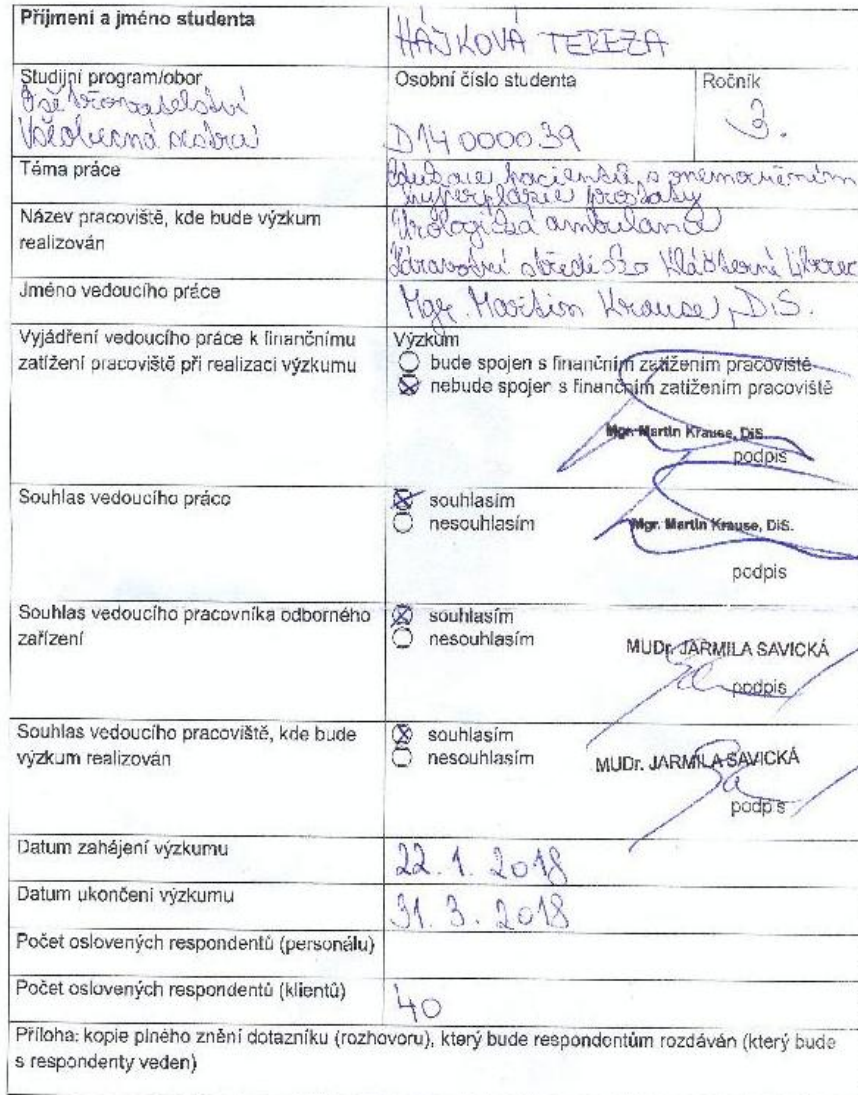 Příjmení a jméno studenta
HÁJKOVÁ TEREZA
Studijní program/obor
Ošetřovatelství
Všeobecná sestra
Osobní číslo studenta
D14000039
Ročník
3.
Téma práce
Edukace pacientů s onemocněním
hyperplázie prostaty
Název pracoviště, kde bude výzkum
realizován
Urologická ambulance
Zdravotní středisko Klášterní Liberec
Jméno vedoucího práce
Mgr. Martin Krause, DiS.
Vyjádření vedoucího práce k finančnímu
zatížení pracoviště při realizaci výzkumu
Výzkum
bude spojen s finančním zatížením pracoviště
nebude spojen s finančním zatížením pracoviště
Mgr. Martin Krause, DiS.
podpis
Souhlas vedoucího práce
souhlasím
nesouhlasím
Mgr. Martin Krause, DiS.
podpis
Souhlas vedoucího pracovníka odborného
zařízení
souhlasím
nesouhlasím
MUDr. JARMILA SAVICKÁ
podpis
Souhlas vedoucího pracoviště, kde bude
výzkum realizován
souhlasím
nesouhlasím
MUDr. JARMILA SAVICKÁ
podpis
Datum zahájení výzkumu
22. 1. 2018
Datum ukončení výzkumu
31. 3. 2018
Počet oslovených respondentů (personálu)
Počet oslovených respondentů (klientů)
40
Příloha: kopie plného znění dotazníku (rozhovoru), který bude respondentům rozdáván (který bude
s respondenty veden)